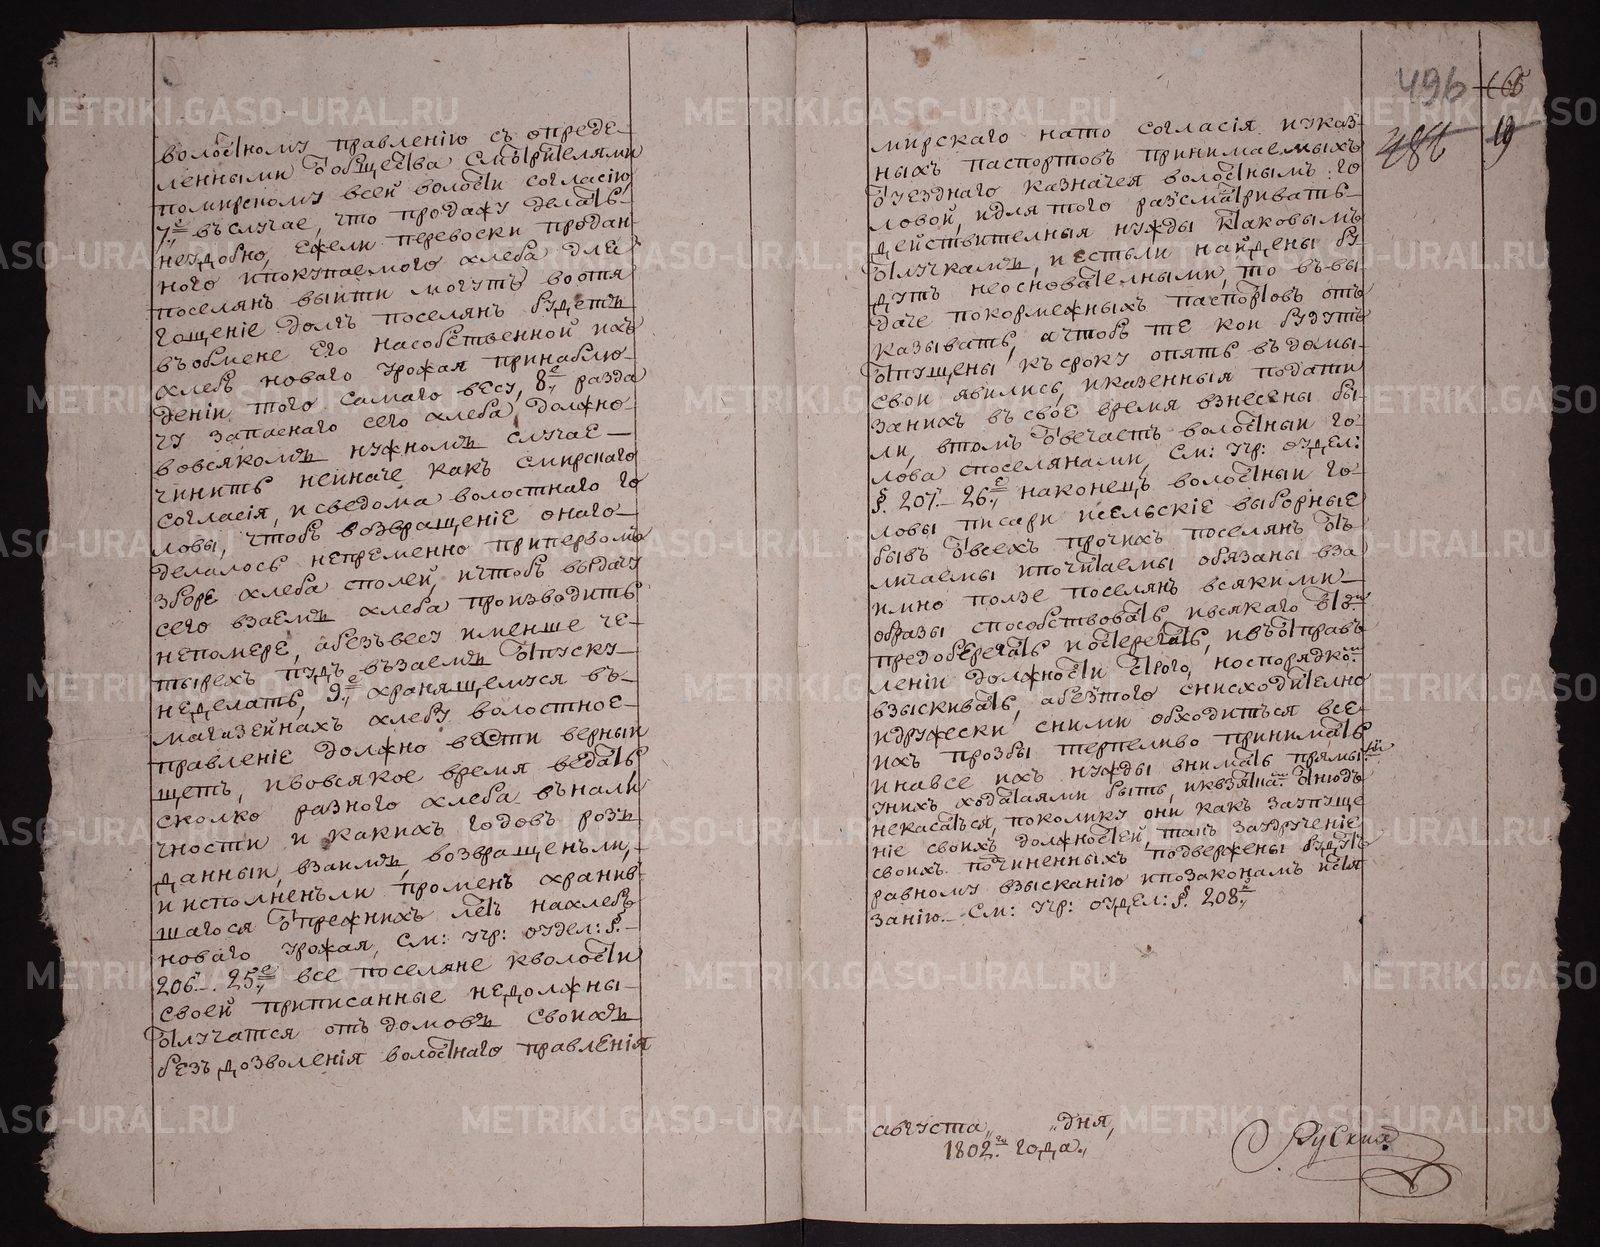 волостному правленію съ опреде-
ленными отобщества смотрителями
помирскому всей волости согласію
7.е въслучае, что продажу делать
неудобно, ежели перевоски продан
ного ипокупаемого хлеба для
поселянъ выйти могутъ воотя
гощеніе долгъ поселянъ будетъ
въобмене его насобственной ихъ
хлебъ новаго урожая принаблю-
деніи того самаго весу, 8.е разда
чу запаснаго сего хлеба должно
вовсякомъ нужномъ случае
чинить неиначе какъ смирскаго
согласія, исведома волостнаго го
ловы, чтобъ возвращеніе онаго
делалось непременно припервомъ
зборе хлеба сполей, ичтобъ выдачу
сего взаемъ хлеба производить
непомере, абезъвесу именше че-
тырехъ пудъ възаемъ отпуску
неделать, 9.е хранящемуся въ
магазейнахъ хлебу волостное
правленіе должно вести верный
щетъ, ивовсякое время ведать
сколко разного хлеба вънали
чности и какихъ годовъ розъ
данный взаимъ, возвращенъли,
и исполненъли променъ хранив
шагося отпрежнихъ летъ нахлебъ
новаго урожая, см: учр: отдел: §.
206. 25.е все поселяне кволости
своей приписанные недолжны
отлучатся отъ домовъ своихъ
безъ дозволенія волостнаго правленія
496 166
486 19
мирскаго нато согласія иуказ-
ныхъ паспортовъ принимаемыхъ
отуезднаго казначея волостнымъ го
ловой, идля того разсматривать
действителныя нужды ктаковымъ
отлучкамъ, иестьли найдены бу
дутъ неоснователными, то въвы
даче покормежныхъ паспортовъ отъ
казывать, ачтобъ те кои будутъ
отпущены късроку опять въдомы
свои явились, иказенныя подати
занихъ въ свое время взнесены бы
ли, втомъ отвечаетъ волостный го
лова споселянами, см: учр: отдел:
§. 207. 26.е наконецъ волостный го
ловы писари иселскіе выборные
бывъ отвсехъ прочихъ поселянъ отъ
личаемы ипочитаемы обязаны вза
имно ползе поселянъ всякими
образы способствовать ивсякаго
предоберегать иостерегать, ивъотправъ
леніи должности строго, носпорядком
взыскивать, абезтого снисходително
идружески сними обходиться все
ихъ прозбы терпеливо принимать
инавсе ихъ нужды внимать прямый
унихъ ходатаями быть, иквзятка отнюдъ
некасаться, поколику они какъ заупуще
ніе своихъ должностей, такъ заудрученіе
своихъ подчиненныхъ подвержены будутъ
равному взысканію ипозаконамъ истя
занію. См: учр: отдел: §. 208.
августа „ „ дня,
1802.го года.
Руския